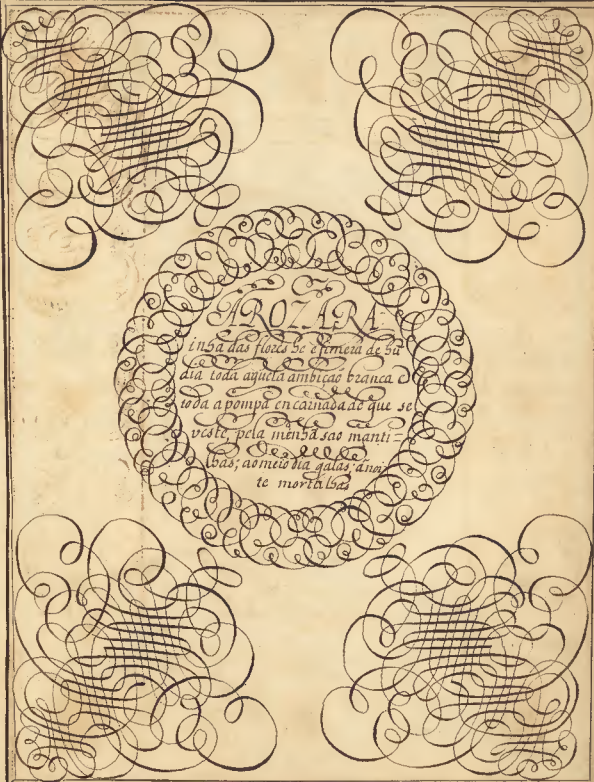 A ROZA, RA-
inha das flores he efimera de hũ
dia toda aquela ambiçaõ branca e
toda a pompa encarnada de que se
veste, pela menhã sao manti-
lhas; ao meio dia galas, a noi
te mortalhas